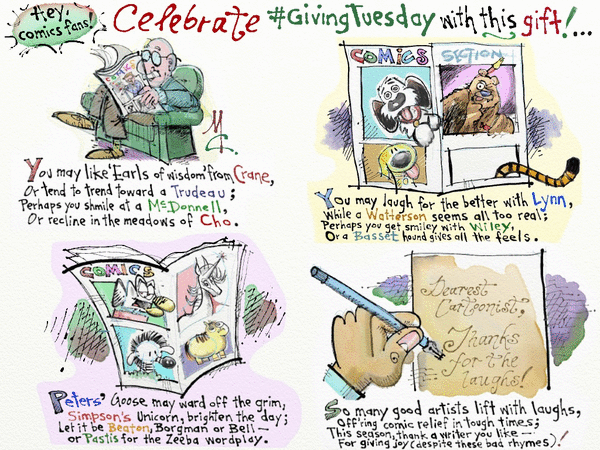 Hey, comics fans!
Celebrate #GivingTuesday with this gift!...
COMICS
MG
You may like 'Earls of wisdom' from Crane,
Or tend to trend toward a Trudeau;
Perhaps you shmile at a McDonnell,
Or recline in the meadows of Cho.
COMICS SECTION
You may laugh for the better with Lynn,
While a Watterson seems all too real;
Perhaps you get smiley with Wiley,
Or a Basset hound gives all the feels.
COMICS
Peters' Goose may ward off the grim,
Simpson's Unicorn, brighten the day;
Let it be Beaton, Borgman or Bell —
or Pastis for the Zeeba wordplay.
Dearest
Cartoonist,
Thanks
for the
laughs!
So many good artists lift with laughs,
Off'ring comic relief in tough times;
This season, thank a writer you like —
For giving joy (despite these bad rhymes)!